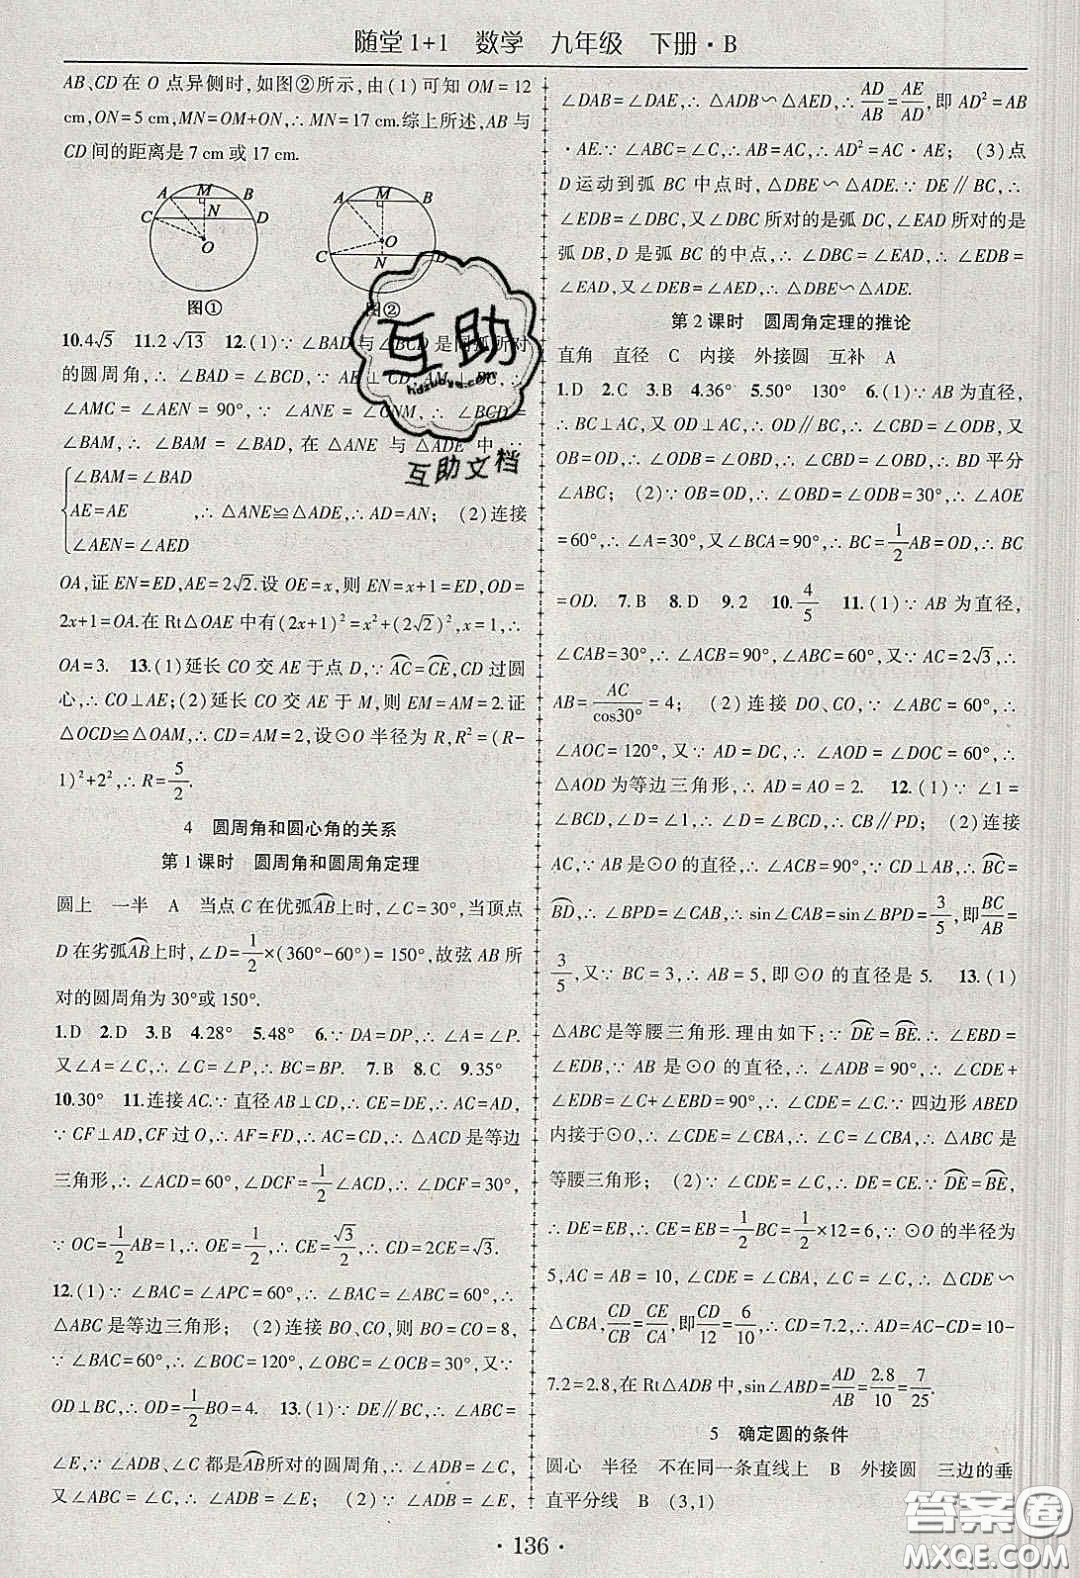 随堂1+1 数学 九年级 下册·B
AB、CD在O点异侧时,如图②所示,由(1)可知OM=12
cm,ON=5 cm,MN=OM+ON,∴MN=17 cm.综上所述,AB与
CD间的距离是7 cm或17 cm.
A M B
C N D
O
图①
A M B
O
C N D
图②
10.4√5 11.2√13 12.(1)∵∠BAD与∠BCD是同弧所对
的圆周角,∴∠BAD=∠BCD,∵AE⊥CD,AM⊥BC,∴
∠AMC=∠AEN=90°,∵∠ANE=∠CNM,∴∠BCD=
∠BAM,∴∠BAM=∠BAD,在△ANE与△ADE中,∵
{∠BAM=∠BAD
AE=AE ,∴△ANE≌△ADE,∴AD=AN; (2)连接
∠AEN=∠AED
OA,证EN=ED,AE=2√2.设OE=x,则EN=x+1=ED,OD=
2x+1=OA.在Rt△OAE中有(2x+1)²=x²+(2√2)²,x=1,∴
OA=3. 13.(1)延长CO交AE于点D,∵AC⌒=CE⌒,CD过圆
心,∴CO⊥AE;(2)延长CO交AE于M,则EM=AM=2.证
△OCD≌△OAM,∴CD=AM=2,设⊙O半径为R,R²=(R-
1)²+2²,∴R=5/2.
4 圆周角和圆心角的关系
第1课时 圆周角和圆周角定理
圆上 一半 A 当点C在优弧AB⌒上时,∠C=30°,当顶点
D在劣弧AB⌒上时,∠D=1/2×(360°-60°)=150°,故弦AB所
对的圆周角为30°或150°.
1.D 2.D 3.B 4.28° 5.48° 6.∵DA=DP,∴∠A=∠P.
又∠A=∠C,∴∠C=∠P,∴BC=BP. 7.B 8.C 9.35°
10.30° 11.连接AC.∵直径AB⊥CD,∴CE=DE,∴AC=AD,
∵CF⊥AD,CF过O,∴AF=FD,∴AC=CD,∴△ACD是等边
三角形,∴∠ACD=60°,∠DCF=1/2∠ACD,∴∠DCF=30°,
∵OC=1/2AB=1,∴OE=1/2,∴CE=√3/2,∴CD=2CE=√3.
12.(1)∵∠BAC=∠APC=60°,∴∠BAC=∠ABC=60°,∴
△ABC是等边三角形; (2)连接BO、CO,则BO=CO=8,
∵∠BAC=60°,∴∠BOC=120°,∠OBC=∠OCB=30°,又∵
OD⊥BC,∴OD=1/2BO=4. 13.(1)∵DE∥BC,∴∠ABC=
∠E,∵∠ADB、∠C都是AB⌒所对的圆周角,∴∠ADB=∠C,
又∠ABC=∠AC,∴∠ADB=∠E; (2)∵∠ADB=∠E,
∠DAB=∠DAE,∴△ADB∽△AED,∴AD/AB=AE/AD,即AD²=AB
·AE.∵∠ABC=∠C,∴AB=AC,∴AD²=AC·AE; (3)点
D运动到弧BC中点时,△DBE∽△ADE.∵DE∥BC,∴
∠EDB=∠DBC,又∠DBC所对的是弧DC,∠EAD所对的是
弧DB,D是弧BC的中点,∴∠DBC=∠EAD,∴∠EDB=
∠EAD,又∠DEB=∠AED,∴△DBE∽△ADE.
第2课时 圆周角定理的推论
直角 直径 C 内接 外接圆 互补 A
1.D 2.C 3.B 4.36° 5.50° 130° 6.(1)∵AB为直径,
∴BC⊥AC,又OD⊥AC,∴OD∥BC,∴∠CBD=∠ODB,又
OB=OD,∴∠ODB=∠OBD,∴∠CBD=∠OBD,∴BD平分
∠ABC; (2)∵OB=OD,∴∠OBD=∠ODB=30°,∴∠AOE
=60°,∴∠A=30°,又∠BCA=90°,∴BC=1/2AB=OD,∴BC
=OD. 7.B 8.D 9.2 10.4/5 11.(1)∵AB为直径,
∠CAB=30°,∴∠ABC=60°,又∵AC=2√3,∴
AB=AC/cos30°=4; (2)连接DO、CO,∵∠ABC=60°,∴
∠AOC=120°,又∵AD=DC,∴∠AOD=∠DOC=60°,∴
△AOD为等边三角形,∴AD=AO=2. 12.(1)∵∠1=
∠D=∠BCD,∴CB∥PD; (2)连接
AC,∵AB为⊙O的直径,∴∠ACB=90°,∵CD⊥AB,∴BC⌒=
BD⌒,∴∠BPD=∠CAB,∴sin∠CAB=sin∠BPD=3/5,即BC/AB=
3/5,又∵BC=3,∴AB=5,即⊙O的直径是5. 13.(1)
△ABC是等腰三角形.理由如下:∵DE⌒=BE⌒.∴∠EBD=
∠EDB,∵AB是⊙O的直径,∴∠ADB=90°,∴∠CDE+
∠EDB=90°,∠C+∠EBD=90°,∴∠C=∠CDE,∵四边形ABED
内接于⊙O,∴∠CDE=∠CBA,∴∠C=∠CBA,∴△ABC是
等腰三角形; (2)∵∠CDE=∠C,∴DE=CE.∵DE⌒=BE⌒,
∴DE=EB,∴CE=EB=1/2BC=1/2×12=6,∵⊙O的半径为
5,AC=AB=10,∵∠CDE=∠CBA,∠C=∠C,∴△CDE∽
△CBA,CD/CB=CE/CA,即CD/12=6/10,∴CD=7.2,∴AD=AC-CD=10-
7.2=2.8,在Rt△ADB中,sin∠ABD=AD/AB=2.8/10=7/25.
5 确定圆的条件
圆心 半径 不在同一条直线上 B 外接圆 三边的垂
直平分线 B (3,1)
·136·
互助
hdzuoye.com
互助文档
答案圈
MXQE.COM